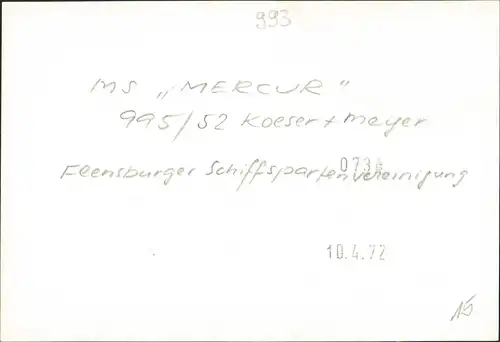 993
MS „MERCUR"
995/52 Koeser + Meyer
Flensburger Schiffspartenvereinigung
10.4.72
15